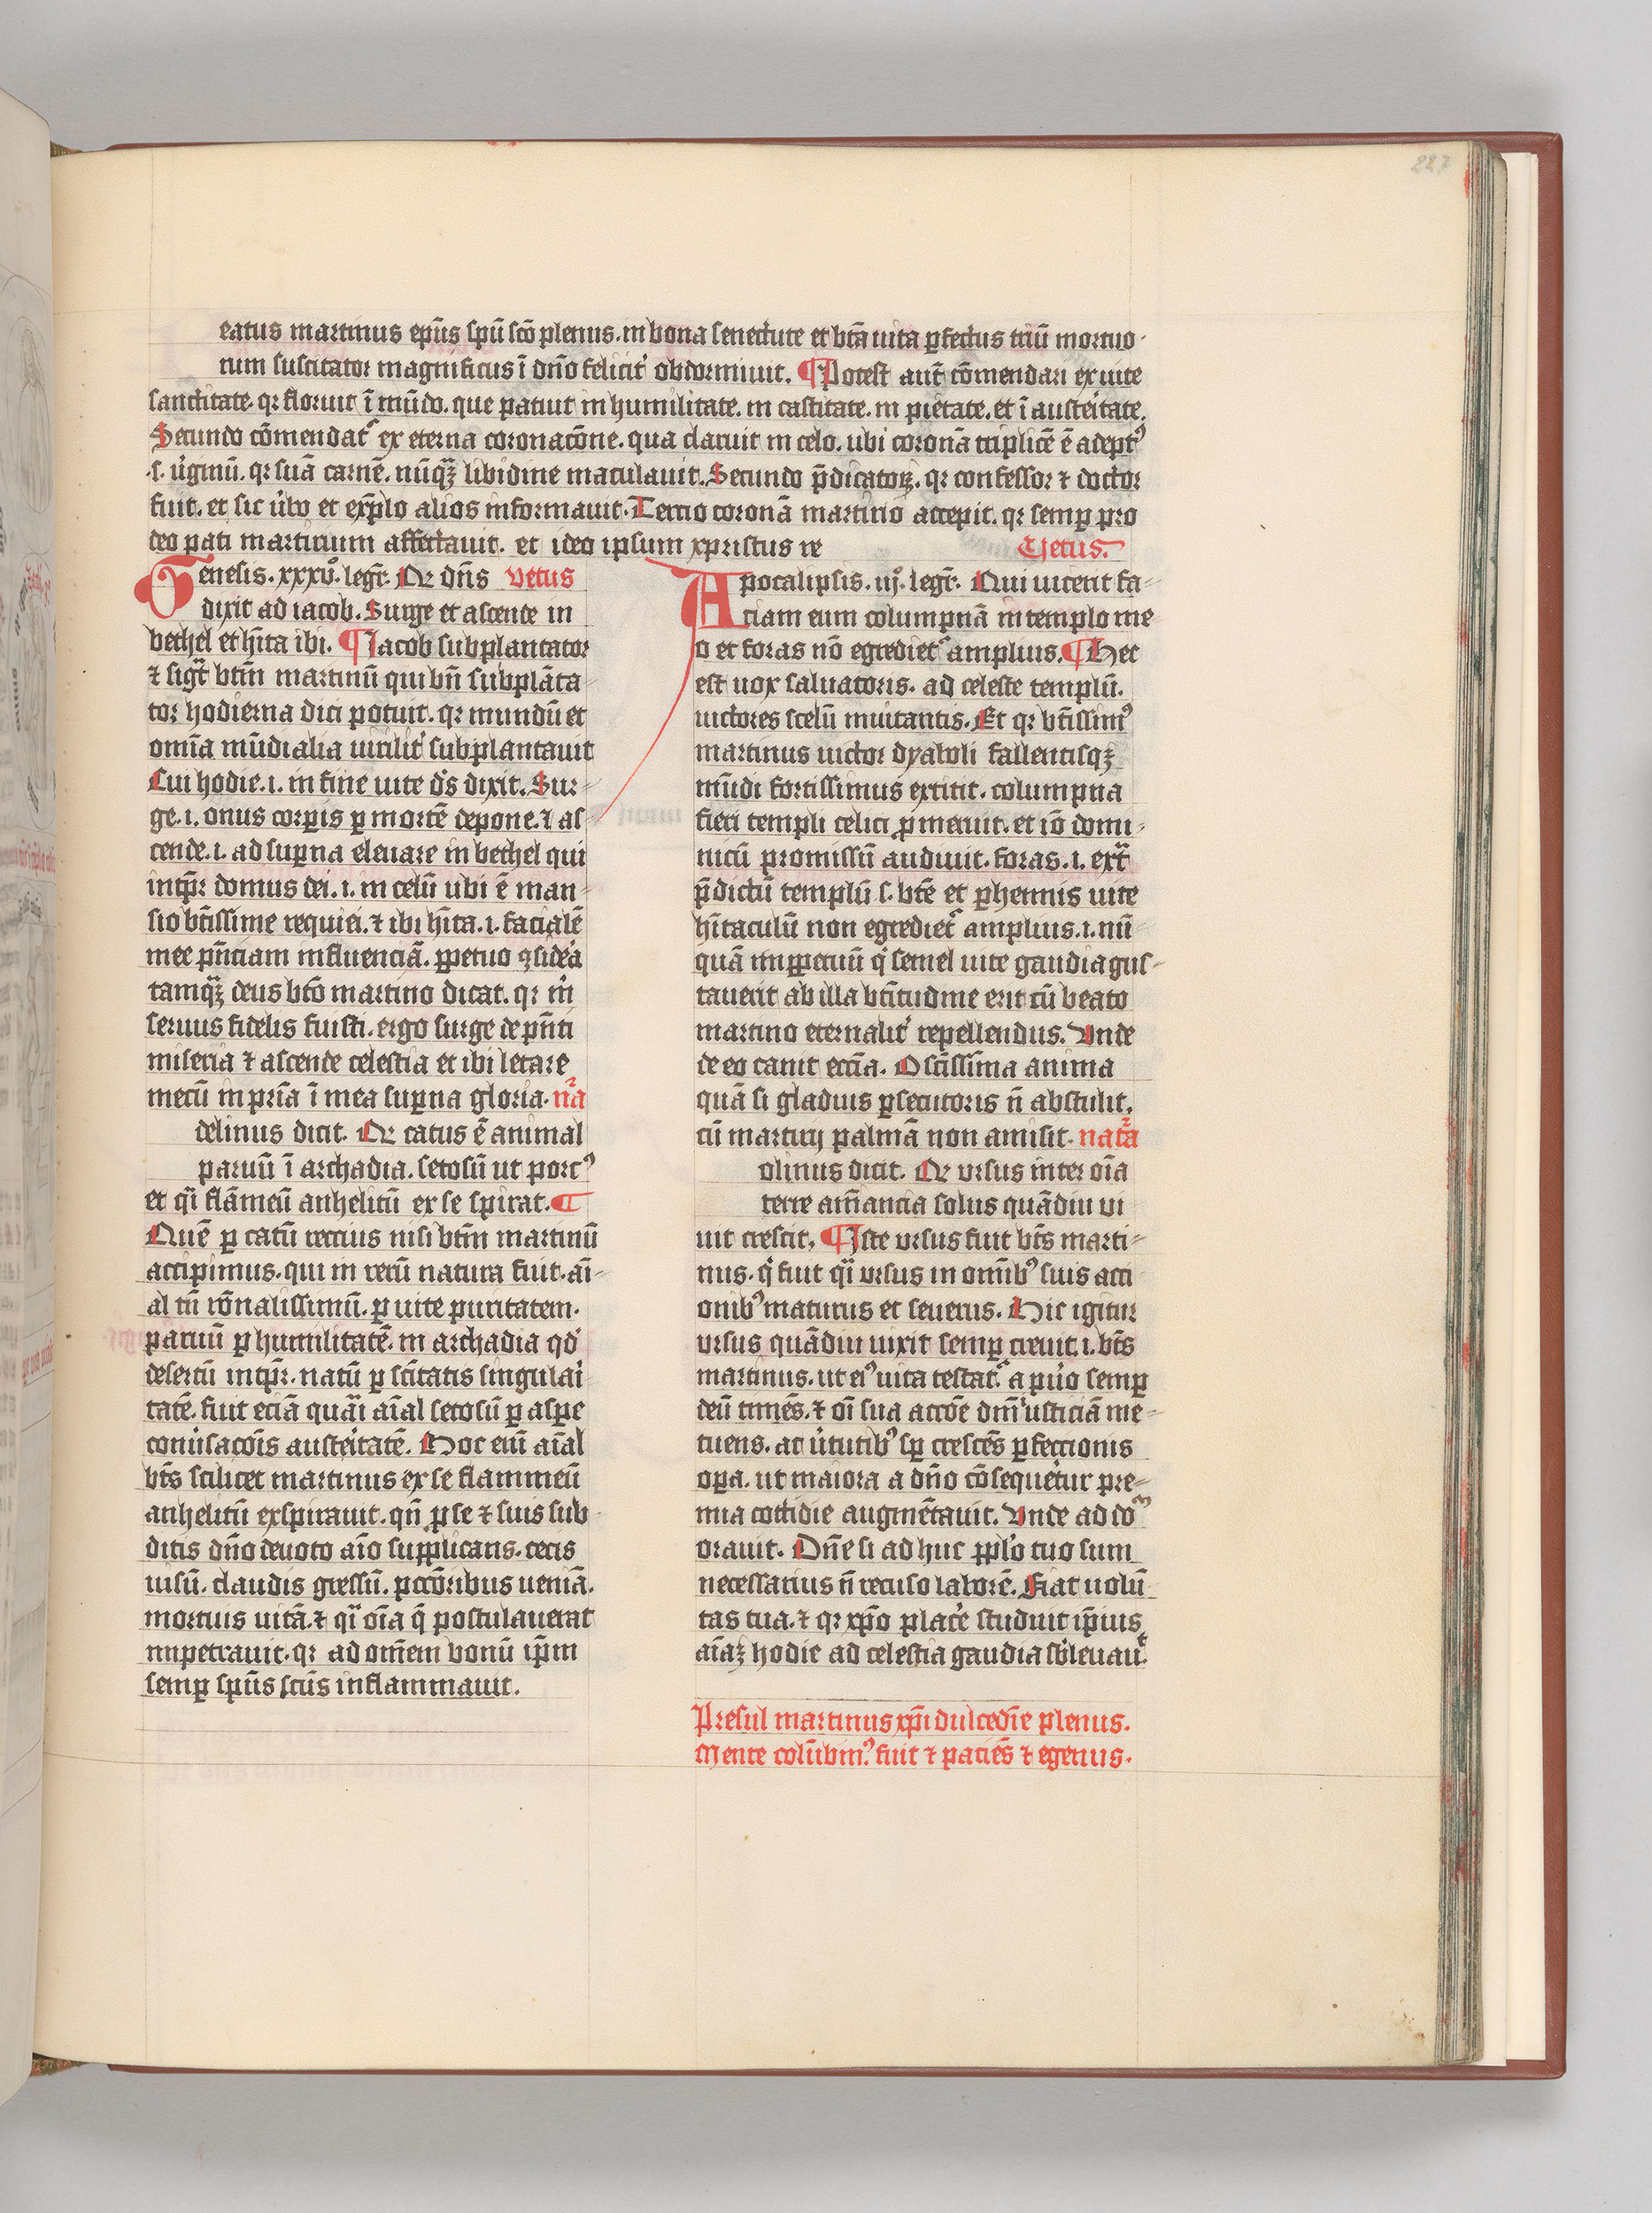 227
eatus martinus ep̄us sp̄u sc̄o plenus. in bona senectute et bt̄a uita ꝑfectus triū mortuo
rum suscitator magnificus ī dn̄o felicit̉ obdormiuit. ¶ Potest aut̄ cōmendari ex uite
sanctitate. qr floruit ī mūdo. que patuit in humilitate. in castitate. in pietate. et ī austeritate.
Secundo cōmendat᷑ ex eterna coronacōne. qua claruit in celo. ubi coronā triplicē ē adeptꝰ
.s. u̓ginū. qr suā carnē. nūqꝫ libidine maculauit. Secundo p̄dicatoꝝ. qr confessor ⁊ doctor
fuit. et sic u̓bo et exp̄lo alios informauit. Tercio coronā martirio accepit. qr semꝑ pro
deo pati martirium affectauit. et ideo ipsum xpristus re
Genesis. xxxv̊. legr̄. Qr dn̄s vetus
dixit ad iacob. Surge et ascende in
bethel et hīta ibi. ¶ Jacob subplantator
⁊ sigt̄ btīn martinū qui bn̄ subplāta
tor hodierna dici potuit. qr mundū et
omīa mūdialia uirilit̉ subplantauit
Cui hodie. i. in fine uite d̄s dixit. Sur
ge. i. onus corꝑis ꝑ mortē depone. ⁊ as
cende. i. ad suꝑna eleuare in bethel qui
intꝑr domus dei. i. in celū ubi ē man
sio btīssime requiei. ⁊ ibi hīta. i. facialē
mee pn̄ciam influenciā. ꝑpetuo ꝯsidera
tamqꝫ deus bt̄o martino dicat. qr m̉
seruus fidelis fuisti. ergo surge de pn̄ti
miseria ⁊ ascende celestia et ibi letare
mecū in pr̄ia ī mea suꝑna gloria. nr̄a
delinus dicit. Qr catus ē animal
paruū ī archadia. setosū ut porcꝰ
et qi̓ flāmeū anhelitū ex se spirat. ¶
Quē ꝑ catū rectius nisi btīn martinū
accipimus. qui in rerū natura fuit. aī
al tn̄ rōnalissimū. ꝑ uite puritatem.
paruū ꝑ humilitatē. in archadia qd̓
desertū intꝑr. natū ꝑ scītatis singulari
tatē. fuit eciā quāi aīal setosū ꝑ aspe
conu̓sacōis austeritatē. Hoc eni aīal
bt̄s scilicet martinus ex se flammeū
anhelitū exspirauit. qn̄ ꝓ se ⁊ suis sub
ditis dn̄o deuoto aīo supplicans. cecis
uisū. claudis gressū. pccōribus ueniā.
mortuis uitā. ⁊ qi̓ oīa q̄ postulauerat
impetrauit. qr ad om̄em bonū ip̄m
semꝑ sp̄us sc̄us inflammauit.
Cjetus.
Apocalipsis. iij̊. legr̄. Qui uicerit fa
ciam eum columpnā in templo me
o et foras nō egrediet᷑ amplius. ¶ Hec
est uox saluatoris. ad celeste templū.
uictores scelū inuitantis. Et qr btīssimꝰ
martinus uictor dyaboli fallentisqꝫ
mūdi fortissimus extitit. columpna
fieri templi celici ꝓmeruit. et iō domi
nicū promissū audiuit. foras. i. ext̄
p̄dictū templū s. bt̄e et ꝑhennis uite
hītaculū non egrediet᷑ amplius. i. nū
quā imꝑpetuū q̓ semel uite gaudia gus
tauerit ab illa btītudine erit cū beato
martino eternalit̉ repellendus. Unde
de eo canit ecc̄ia. O scīssīma anima
quā si gladius ꝑsecutoris n̄ abstulit.
cū martirij palmā non amisit. nat̄a
olinus dicit. Qr ursus inter oīa
terre am̄ancia solus quādiu ui
uit crescit. ¶ Iste ursus fuit bt̄s marti
nus. q̓ fuit qi̓ ursus in omībꝰ suis acti
onibꝰ maturus et seuerus. Hic igitur
ursus quādiu uixit semꝑ creuit. i. bt̄s
martinus. ut eiꝰ uita testat᷑. a pu̓o semꝑ
deū timēs. ⁊ oī sua accōe dm̄ iusticiā me
tuens. ac u̓tutibꝰ sꝑ crescēs ꝑfeccionis
oꝑa. ut maiora a dn̄o cōsequeretur pre
mia cottidie augmētauit. Unde ad dō
orauit. Dn̄e si ad huc ppl̓o tuo sum
necessarius n̄ recuso laborē. Fiat uolū
tas tua. ⁊ qr xp̄o place̓ studuit ip̄ius
aīaꝫ hodie ad celestia gaudia sb̓leuaut.
Presul martinus xp̄i dulcedīe plenus.
Mente colūbinꝰ. fuit ⁊ paciēs ⁊ egenus.